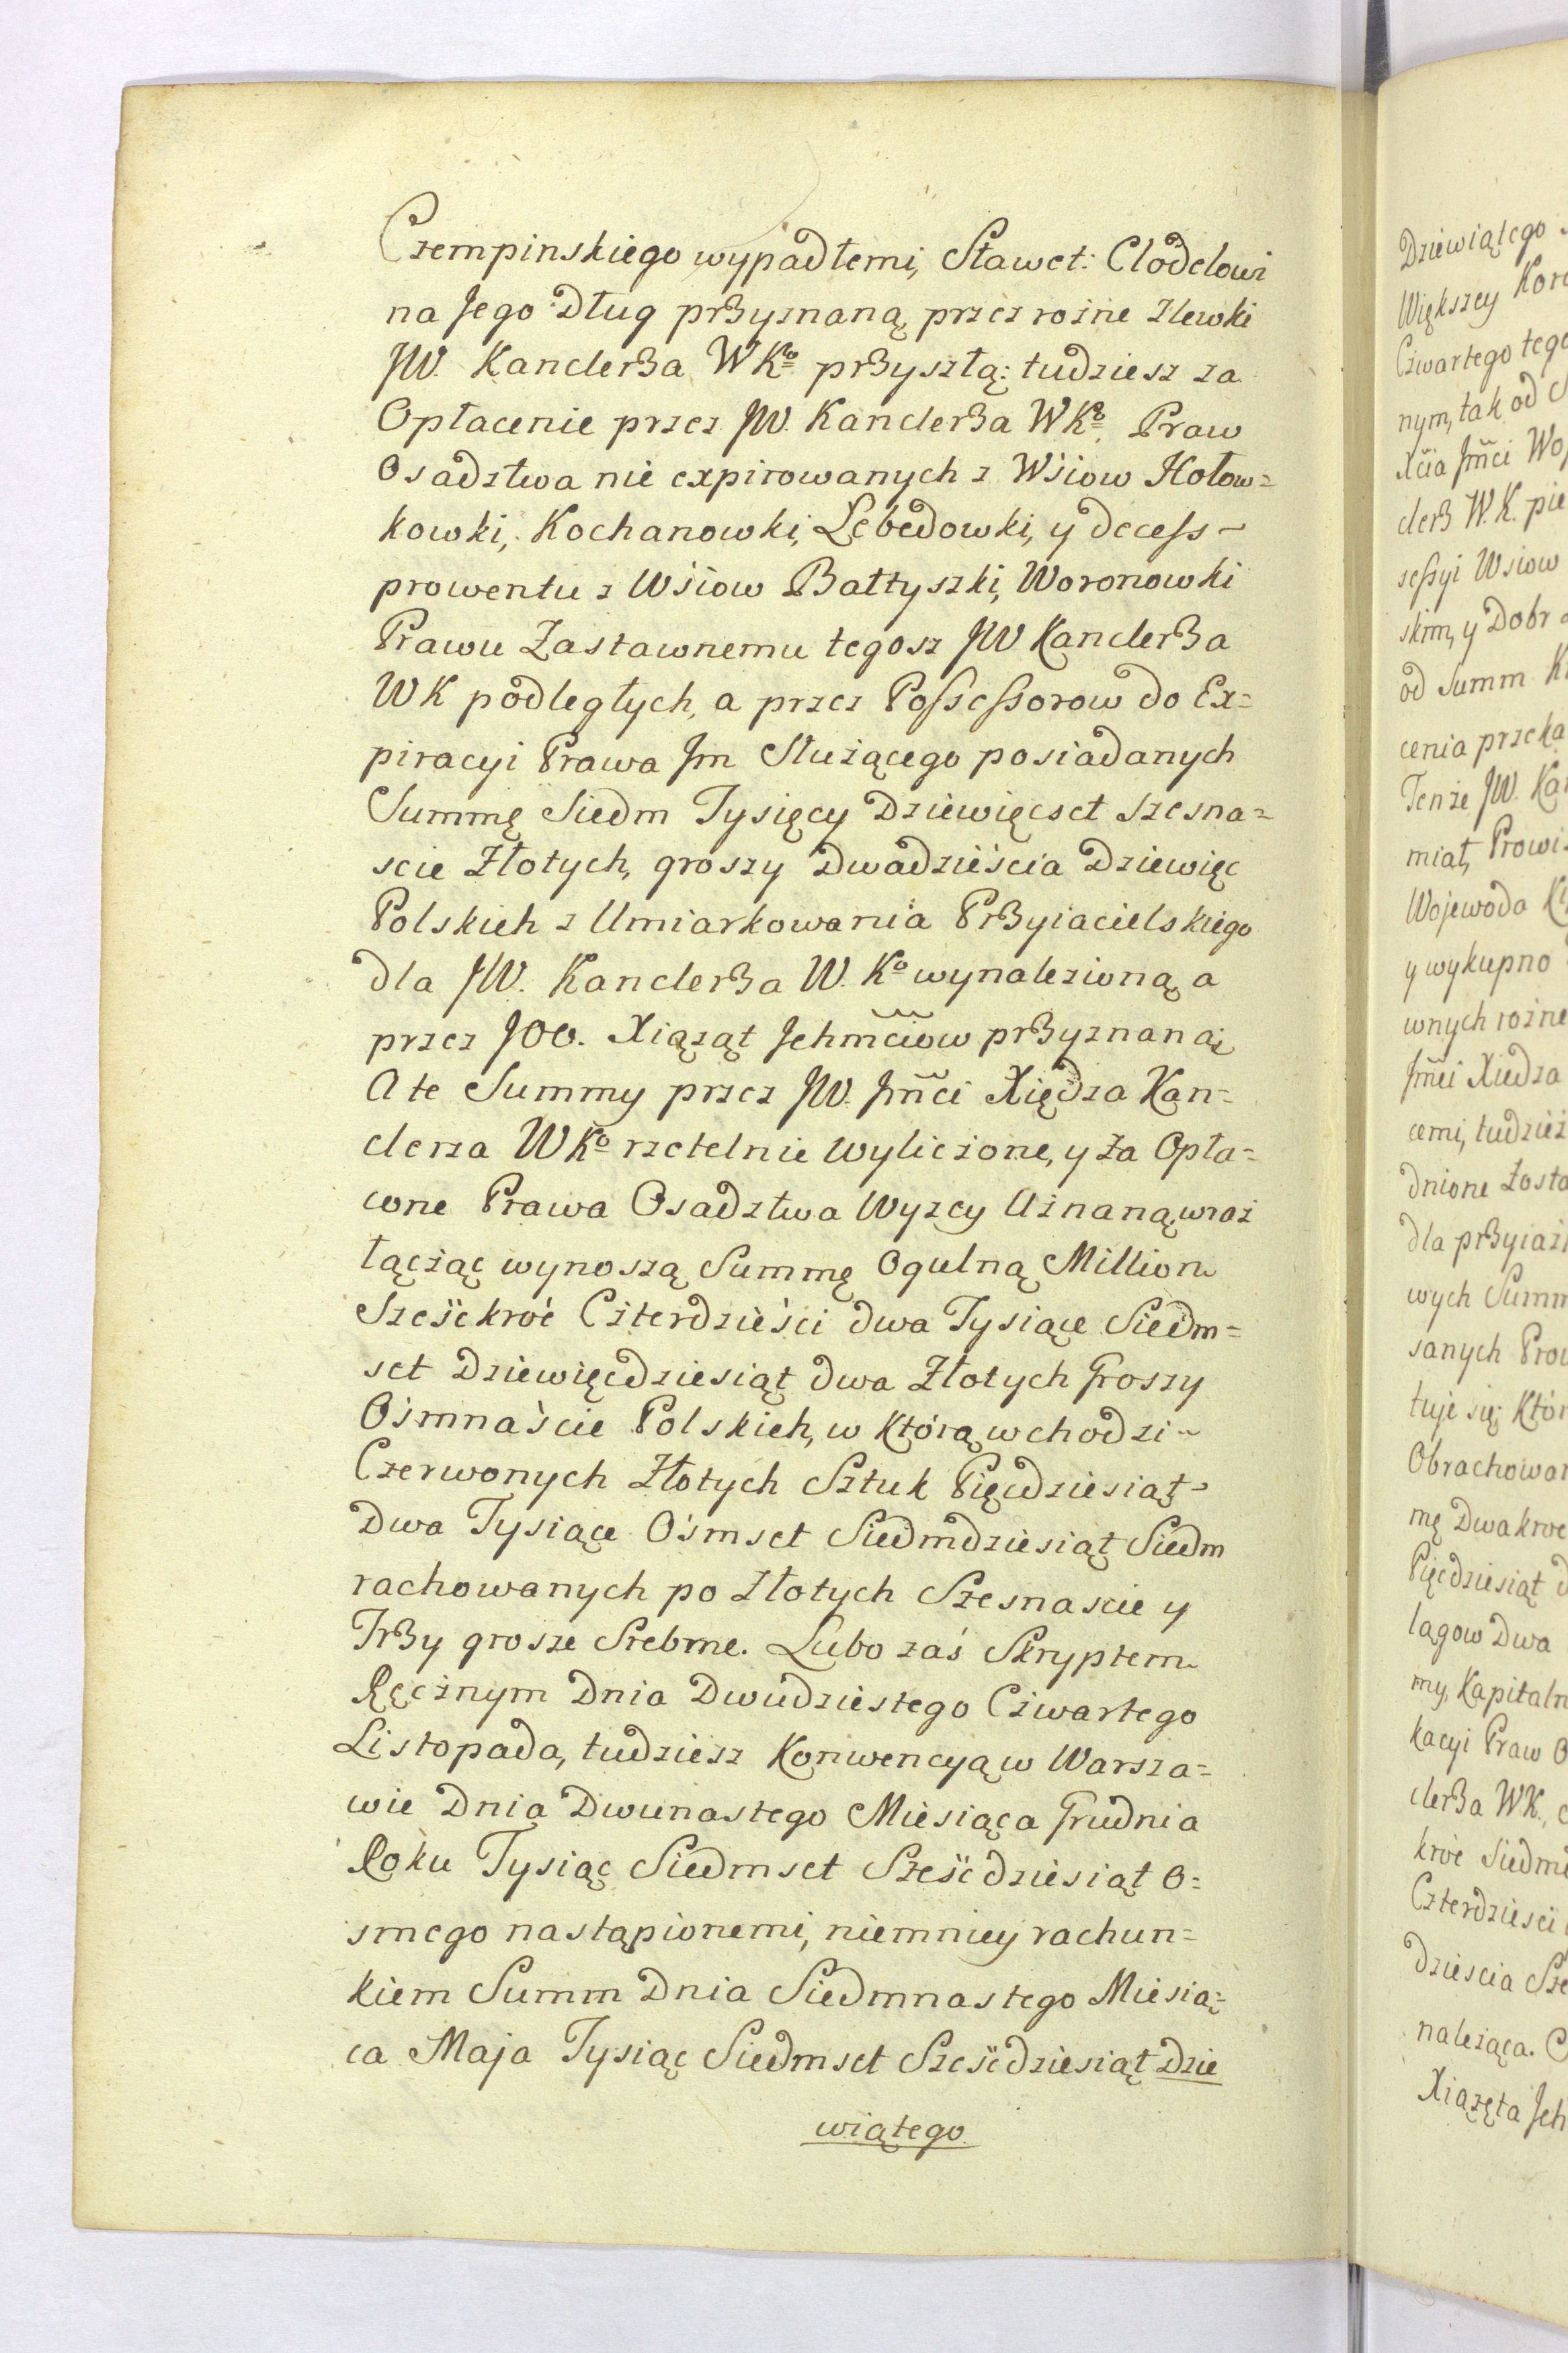 Czempinskiego wypadłemi, Sławet: Clodelowi
na Jego Dług przyznaną przez rożne Zlewki
JW. Kanclerza WKº przyszłą: tudziesz za
Opłacenie przez JW. Kanclerza WKº Praw
Osadztwa nie expirowanych z Wśiow Hołow=
kowki, Kochanowki, Lebedowki, y decess~
prowentu z Wśiow Bałtyszki, Woronowki
Prawu Zastawnemu tegosz JW Kanclerza
WK podległych, a przez Possessorow do Ex=
piracyi Prawa Jm Służącego posiadanych
Summę Siedm Tysięcy Dziewięcset szesna=
scie Złotych, groszy Dwadzieścia Dziewięc
Polskich z Umiarkowania Przyiacielskiego
dla JW. Kanclerza W. Kº wynalezioną a
przez JOO. Xiążąt Jchmciow przyznaną;
A te Summy przez JW. Jmci Xiędza Kan=
clerza WKº rzetelnie wyliczone, y za Opła=
cone Prawa Osadztwa Wyzey Uznaną wraz
łącząc wynoszą Summę Ogulną Million
Sześćkroć Czterdzieści dwa Tysiące Siedm=
set Dziewięcdziesiąt dwa Złotych Groszy
Ośmnaście Polskich, w Którą wchodzi~
Czerwonych Złotych Sztuk Pięcdziesiąt~
Dwa Tysiące Ośmset Siedmdziesiąt Siedm
rachowanych po Złotych Szesnascie y
Trzy grosze Srebrne. Lubo zaś Skryptem
Ręcznym Dnia Dwudziestego Czwartego
Listopada, tudziesz Konwencyą w Warsza=
wie Dnia Dwunastego Miesiąca Grudnia
Roku Tysiąc Siedmset Sześćdziesiąt O=
smego nastąpionemi, niemniey rachun=
kiem Summ Dnia Siedmnastego Miesią=
ca Maja Tysiąc Siedmset Sześćdziesiąt Dzie
wiątego.
Dziewiątego
Większey
Czwartego tego
nym, tak od
Xcia Jmci
clerz W.K.
sessyi Wsiow
skim, y Dobr
od Summ
cenia
Tenże JW.
miał,
Wojewoda
y wykupno
wnych rożne
Jmci Xiedza
cemi, tudzież
dnione
dla
wych
sanych
tuje się;
mę Dwakroc
Pięcdziesiąt
lągow Dwa
my,
kacyi Praw
clerza WK.,
kroć
Czterdziesci
dziescia
należąca.
Xiążęta